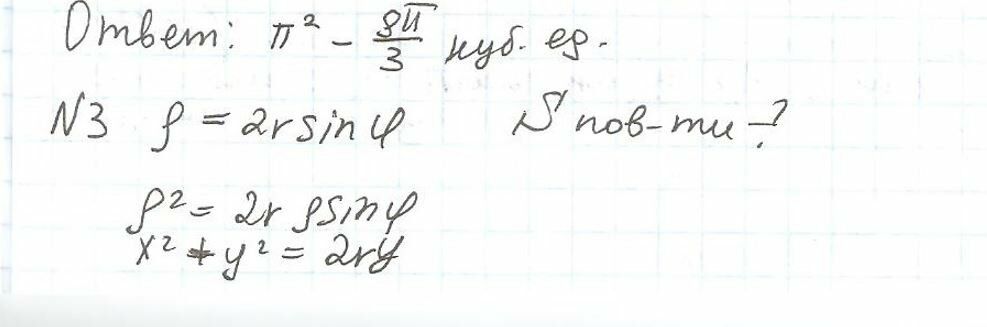 Ответ: π² - 8π/3 куб. ед.
N3 ρ = 2r sin φ S пов-ти - ?
ρ² = 2r ρ sin φ
x² + y² = 2ry